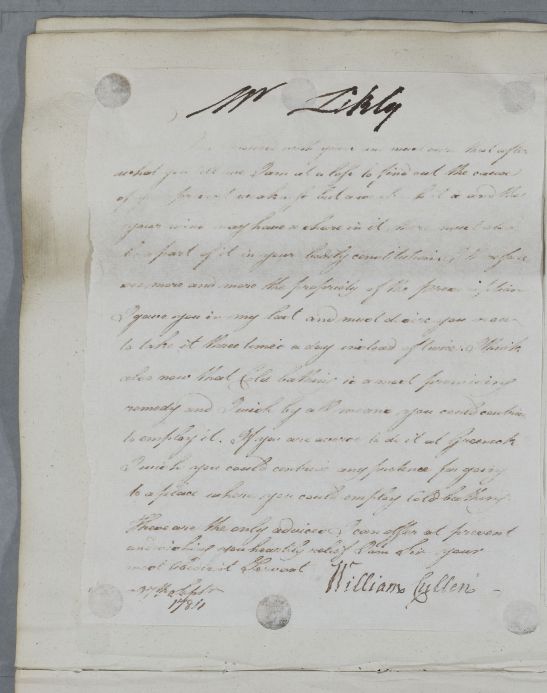 Mr Likly
your in
what you tell me I am at a loss to find out the cause
of your present weakness but and tho
your mind may have a share in it there must also
be a part of it in your bodily constitution. I therefore
see more and more the propriety of the prescription
I gave you in my last and must desire you now
to take it three times a day instead of twice. I think
also now that Cold bathing is a most promising
remedy and I wish by all means you could contrive
to employ it. If you are averse to do it at Greenock
I wish you could contrive any pretence for going
to a place where you could employ cold bathing.
These are the only advices I can offer at present
and wishing you heartily relief I am Sir your
most obedient Servant
William Cullen
27th Septr
1784